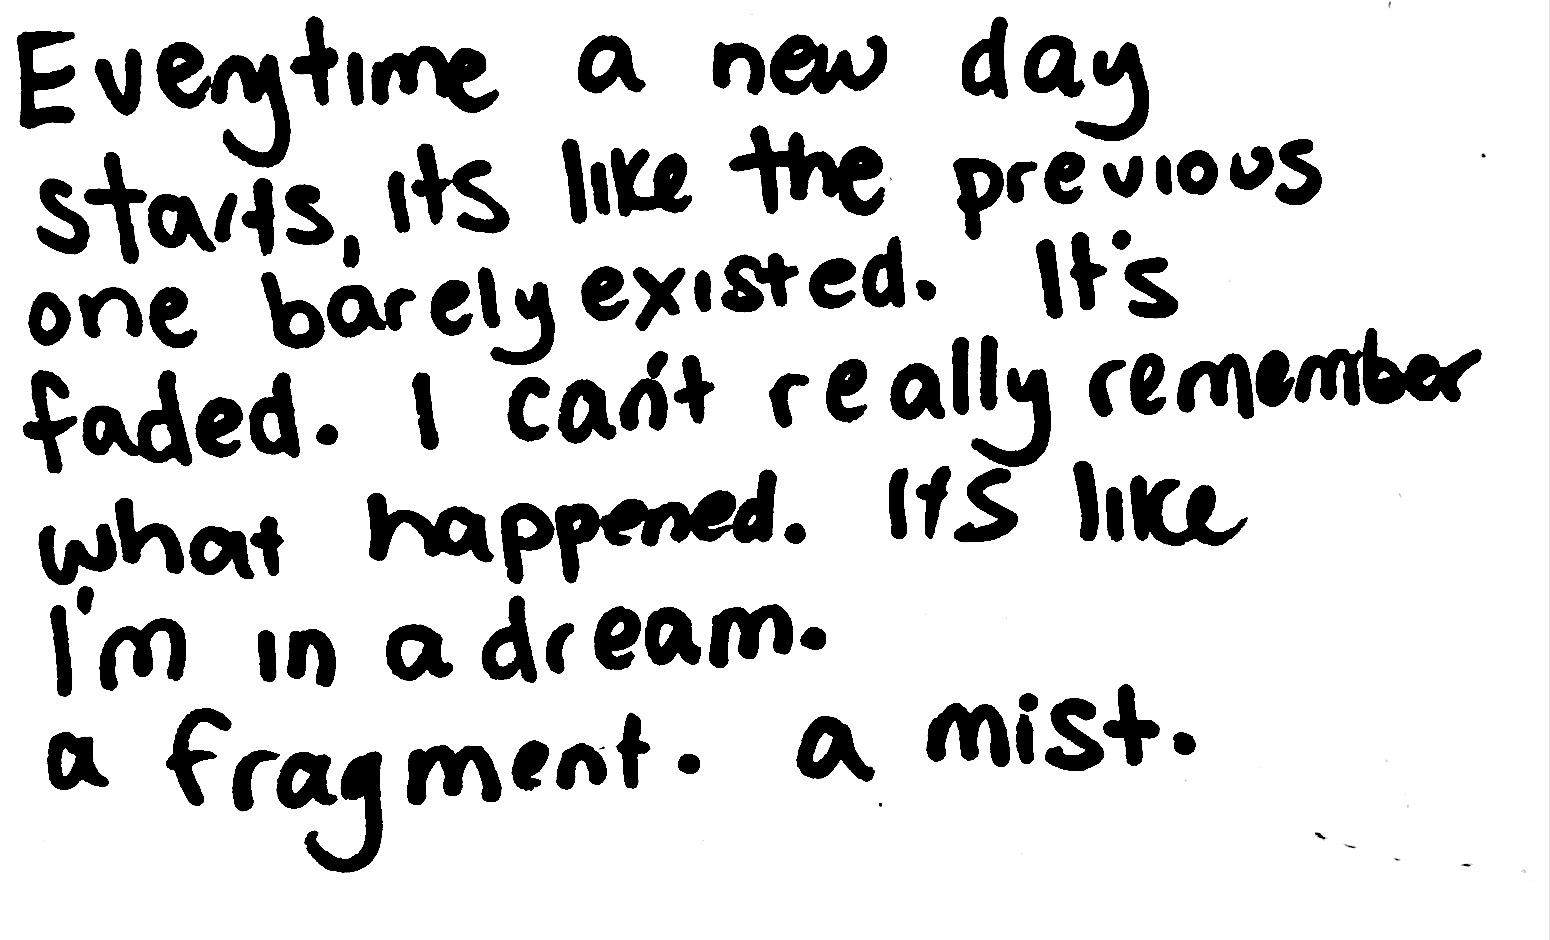 Everytime a new day
starts, its like the previous
one barely existed. It's
faded. I can't really remember
what happened. Its like
I'm in a dream.
a fragment. a mist.